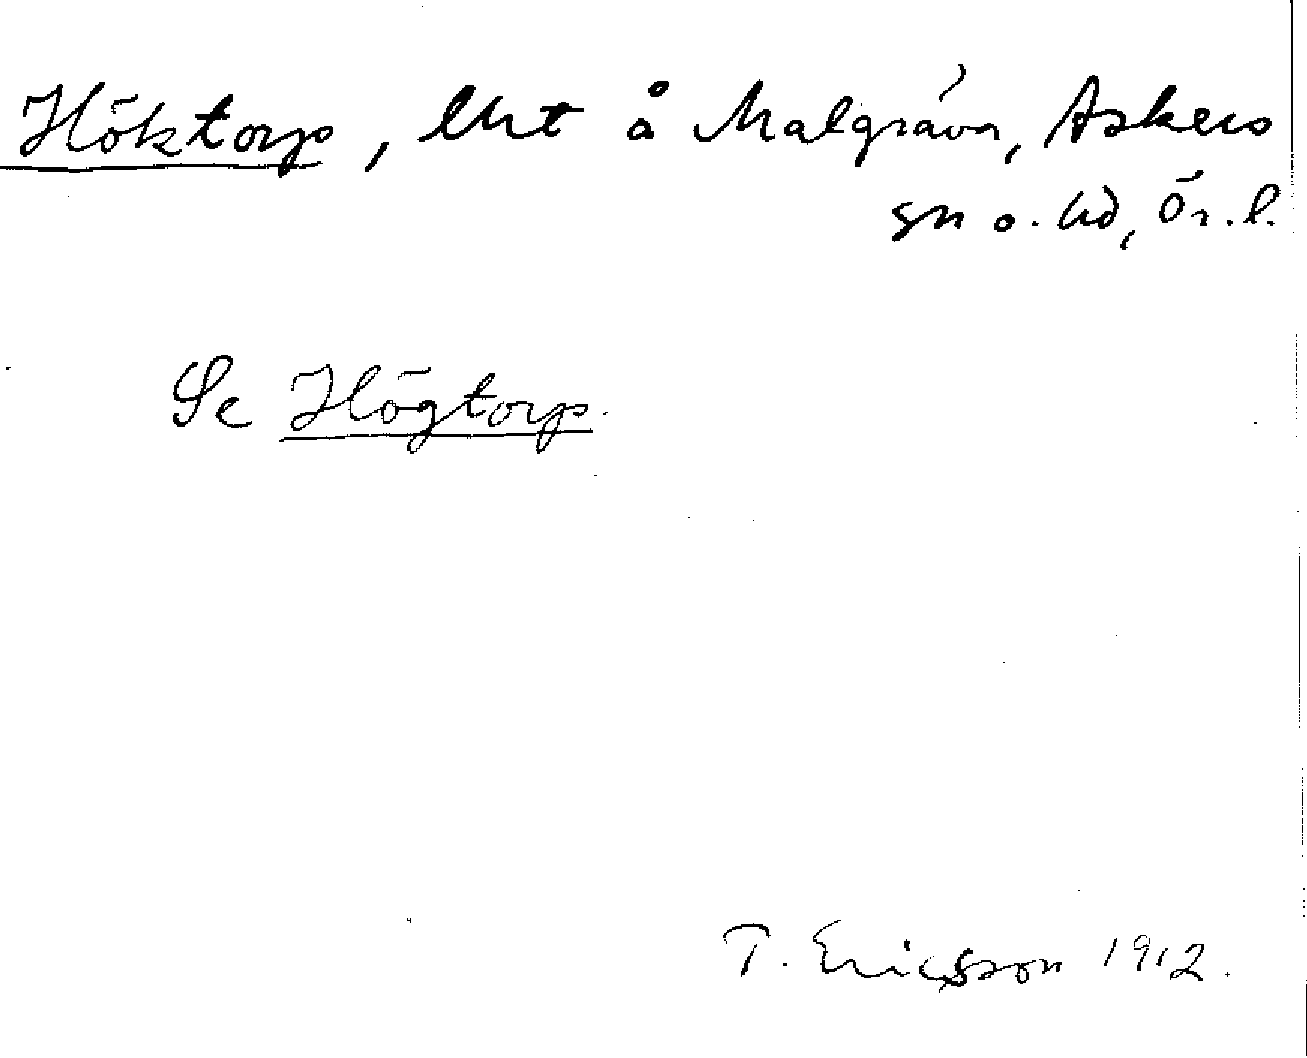 Höktorp, lht å Malgräva, Askers
sn o. hd, Ör. l.
Se Högtorp.
T. Ericsson 1912.